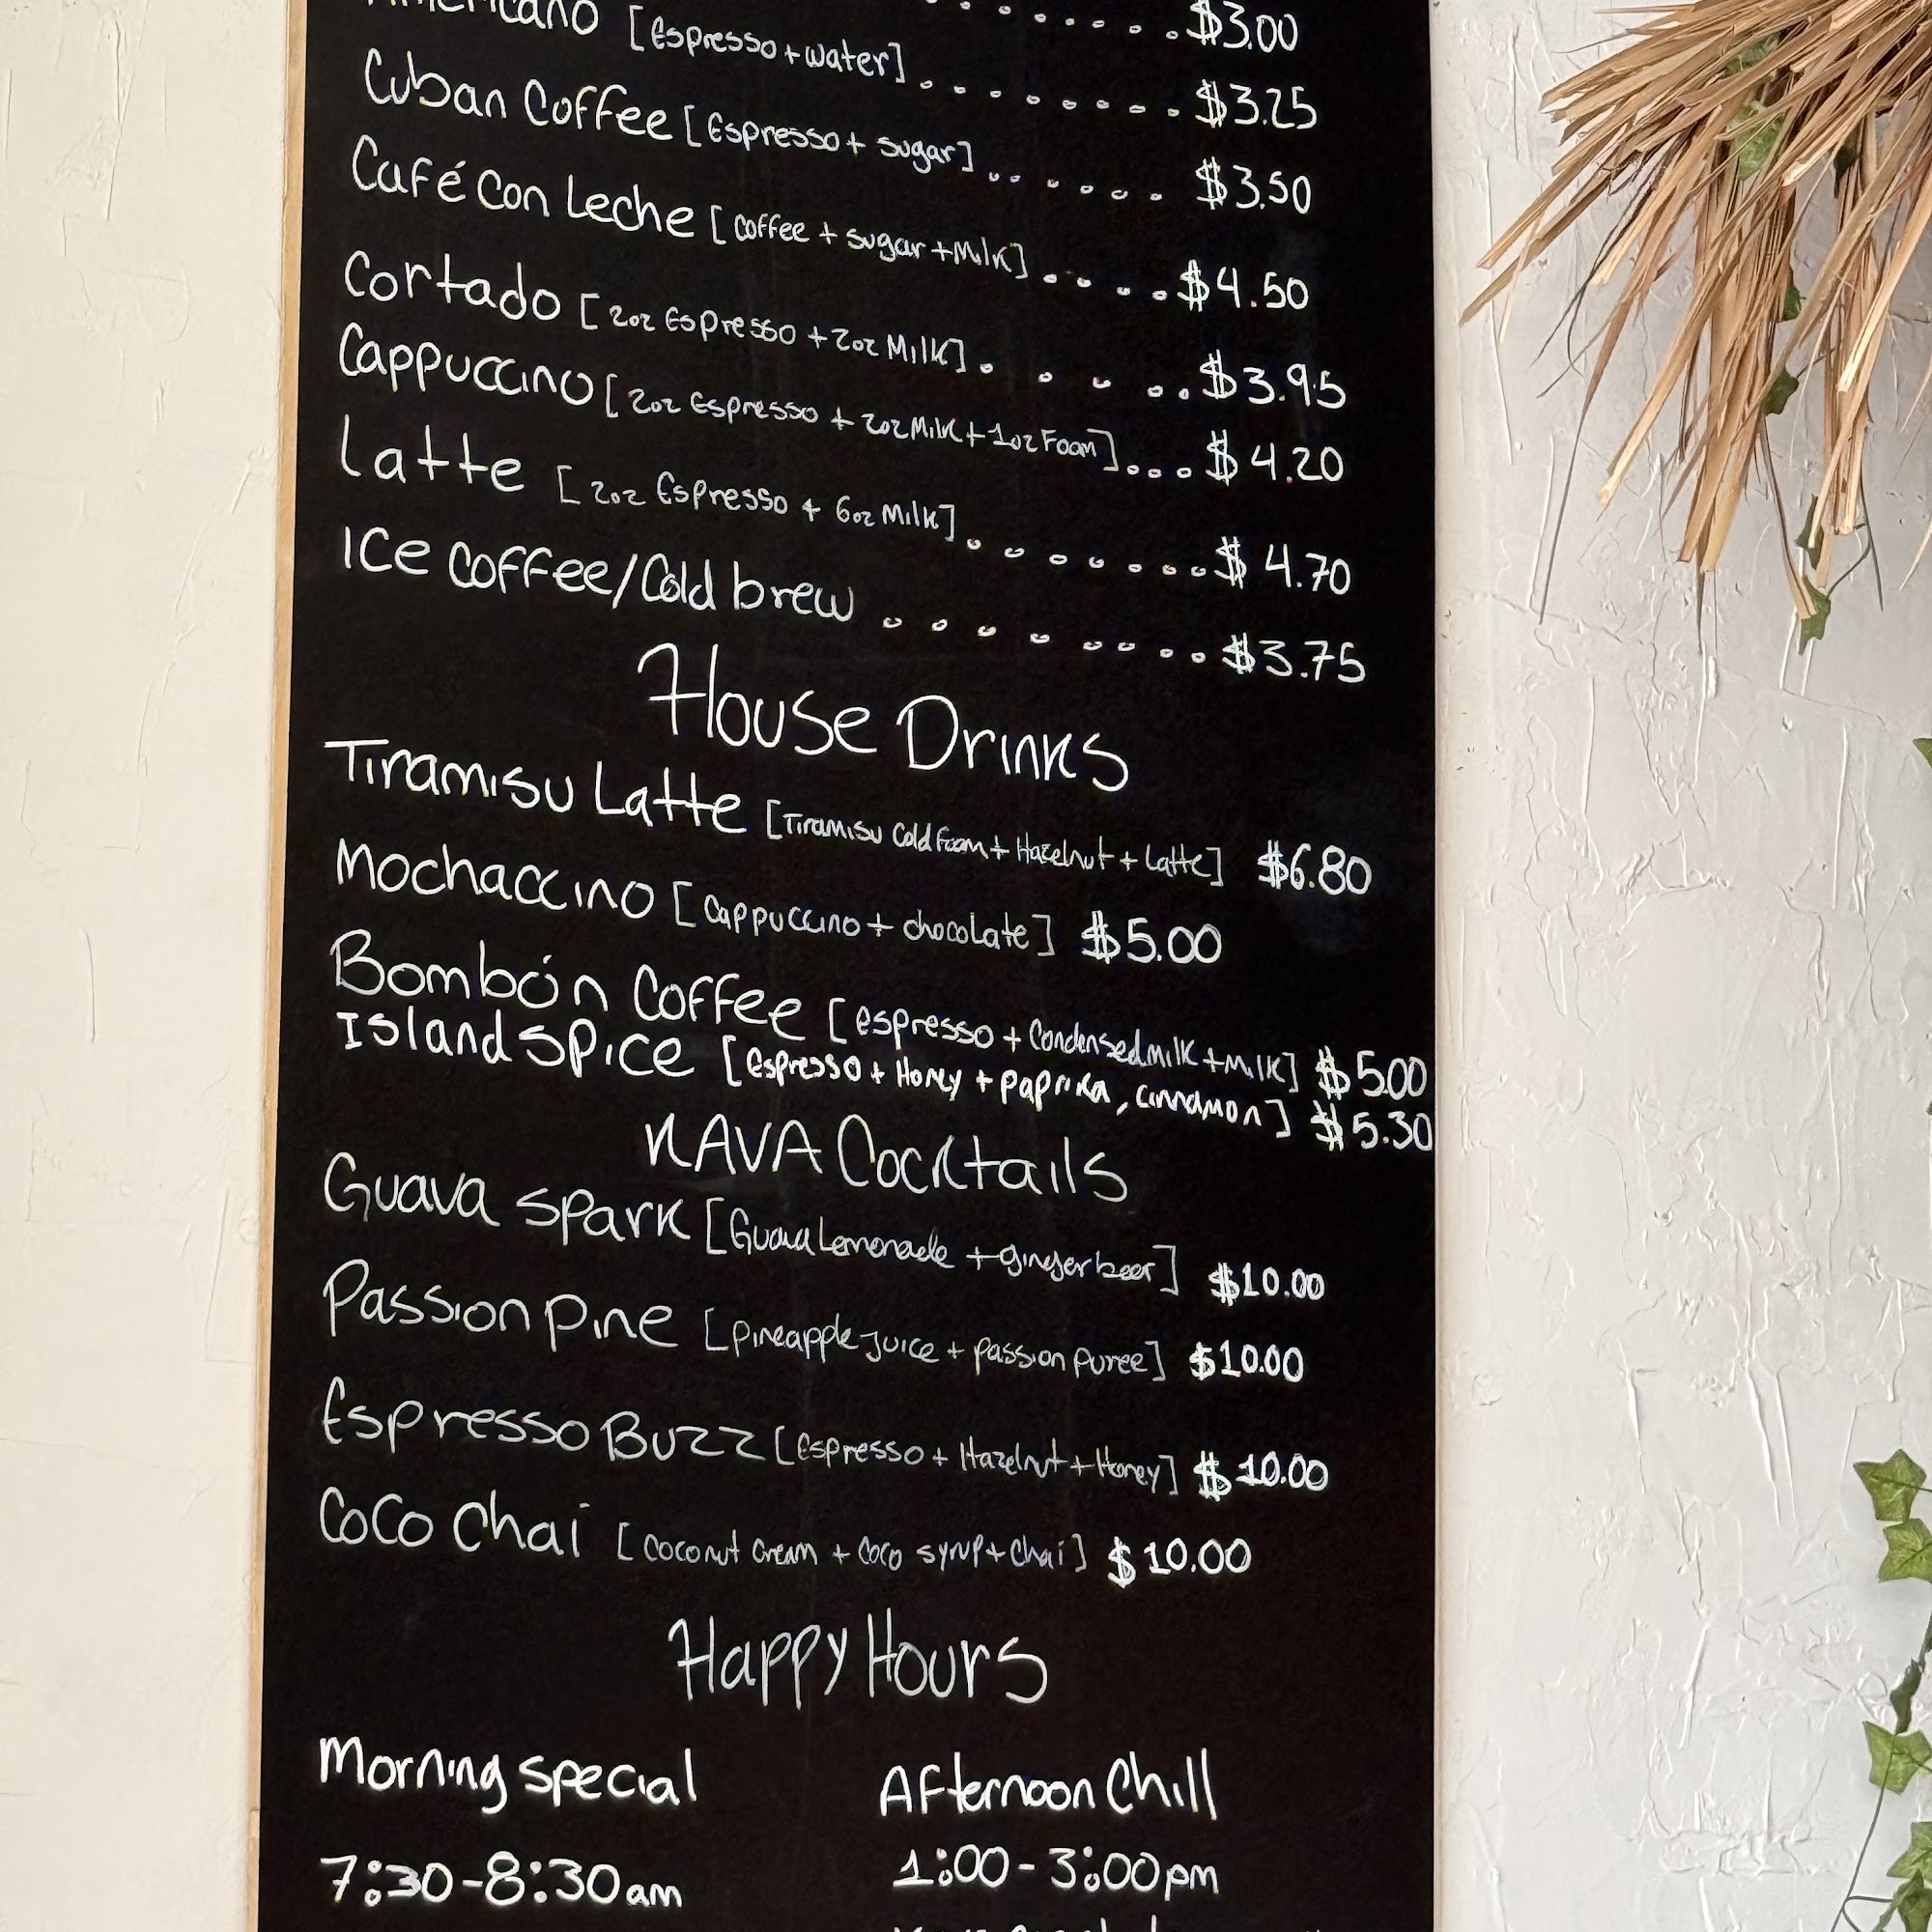 $3.00
Americano [Espresso+water] ........ $3.25
Cuban Coffee [Espresso + sugar] ....... $3.50
Café Con Leche [Coffee + sugar + Milk] .... $4.50
Cortado [2oz Espresso + 2oz Milk] ..... $3.95
Cappuccino [2oz Espresso + 2oz Milk + 1oz Foam] ... $4.20
Latte [2oz Espresso + 6oz Milk] ....... $4.70
Ice Coffee/Cold brew ........ $3.75
House Drinks
Tiramisu Latte [Tiramisu Cold Foam + Hazelnut + Latte] $6.80
Mochaccino [Cappuccino + chocolate] $5.00
Bombón Coffee [espresso + Condensed milk + Milk] $5.00
Island Spice [Espresso + Honey + paprika, cinnamon] $5.30
KAVA Cocktails
Guava Spark [Guava Lemonade + ginger beer] $10.00
Passion Pine [pineapple juice + passion puree] $10.00
Espresso Buzz [Espresso + Hazelnut + Honey] $10.00
CoCo Chai [Coconut Cream + Coco syrup + Chai] $10.00
Happy Hours
Morning special
7:30-8:30am
Afternoon Chill
1:00-3:00pm